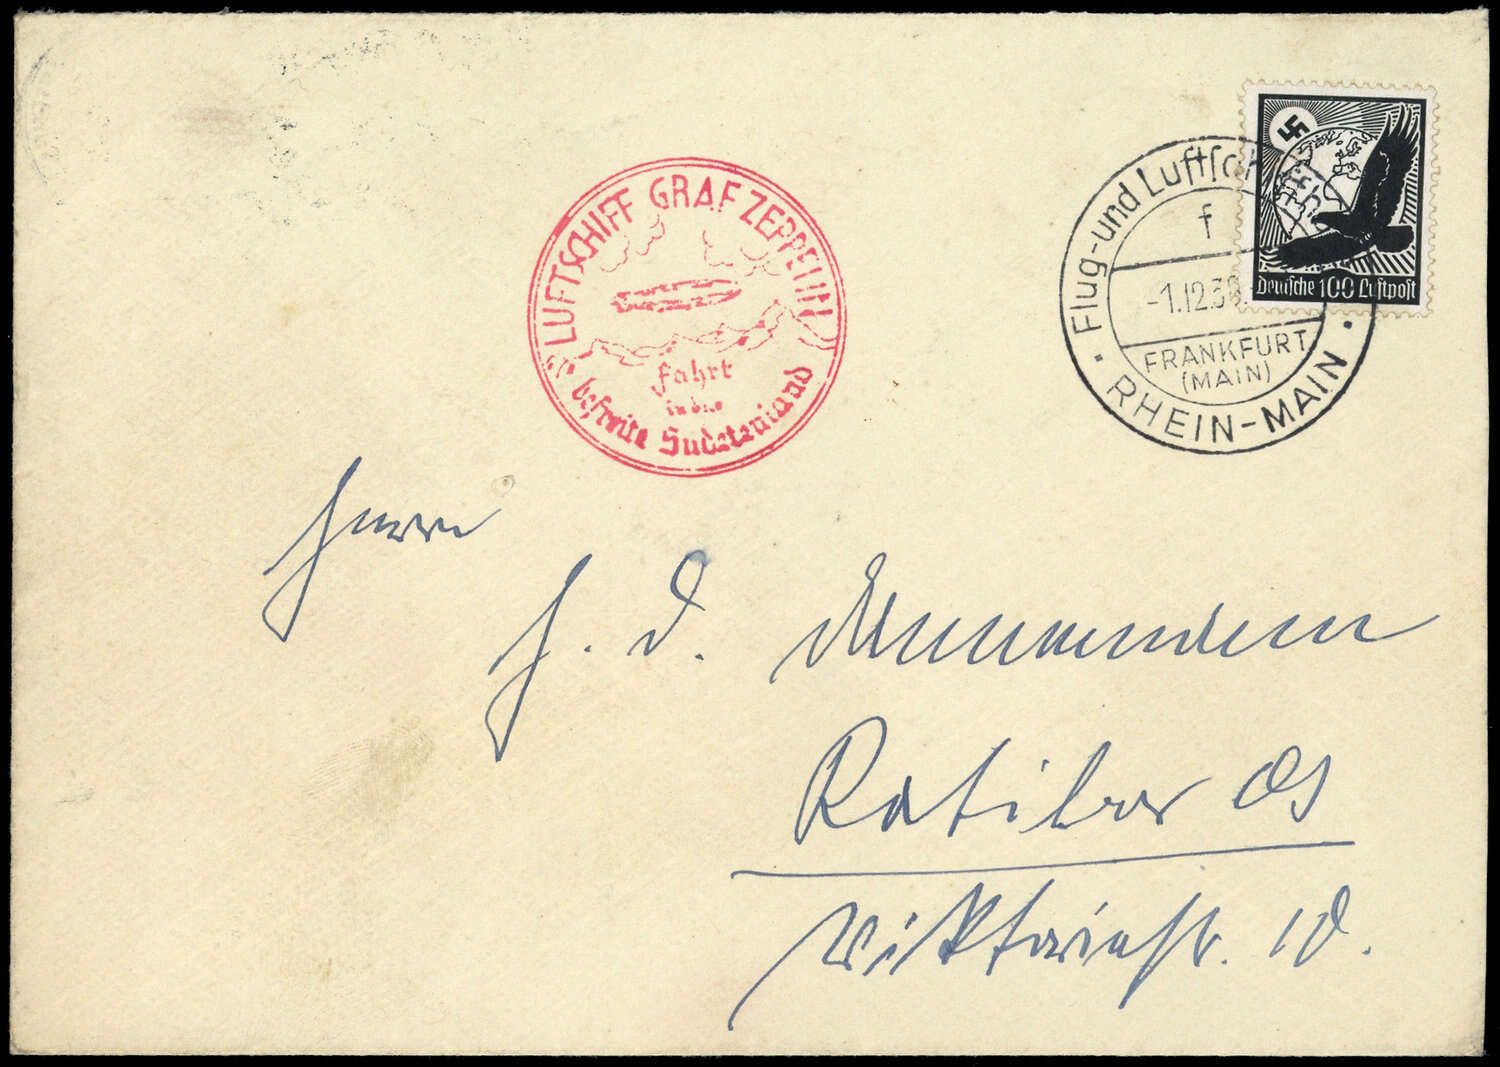 LUFTSCHIFF GRAF ZEPPELIN
Fahrt
in das
befreite Sudetenland
Flug- und Luftsch
f
-1.12.38
FRANKFURT
(MAIN)
• RHEIN-MAIN •
Deutsche 100 Luftpost
Herrn
H. D.
Ratibor OS
Viktoriastr. 10.